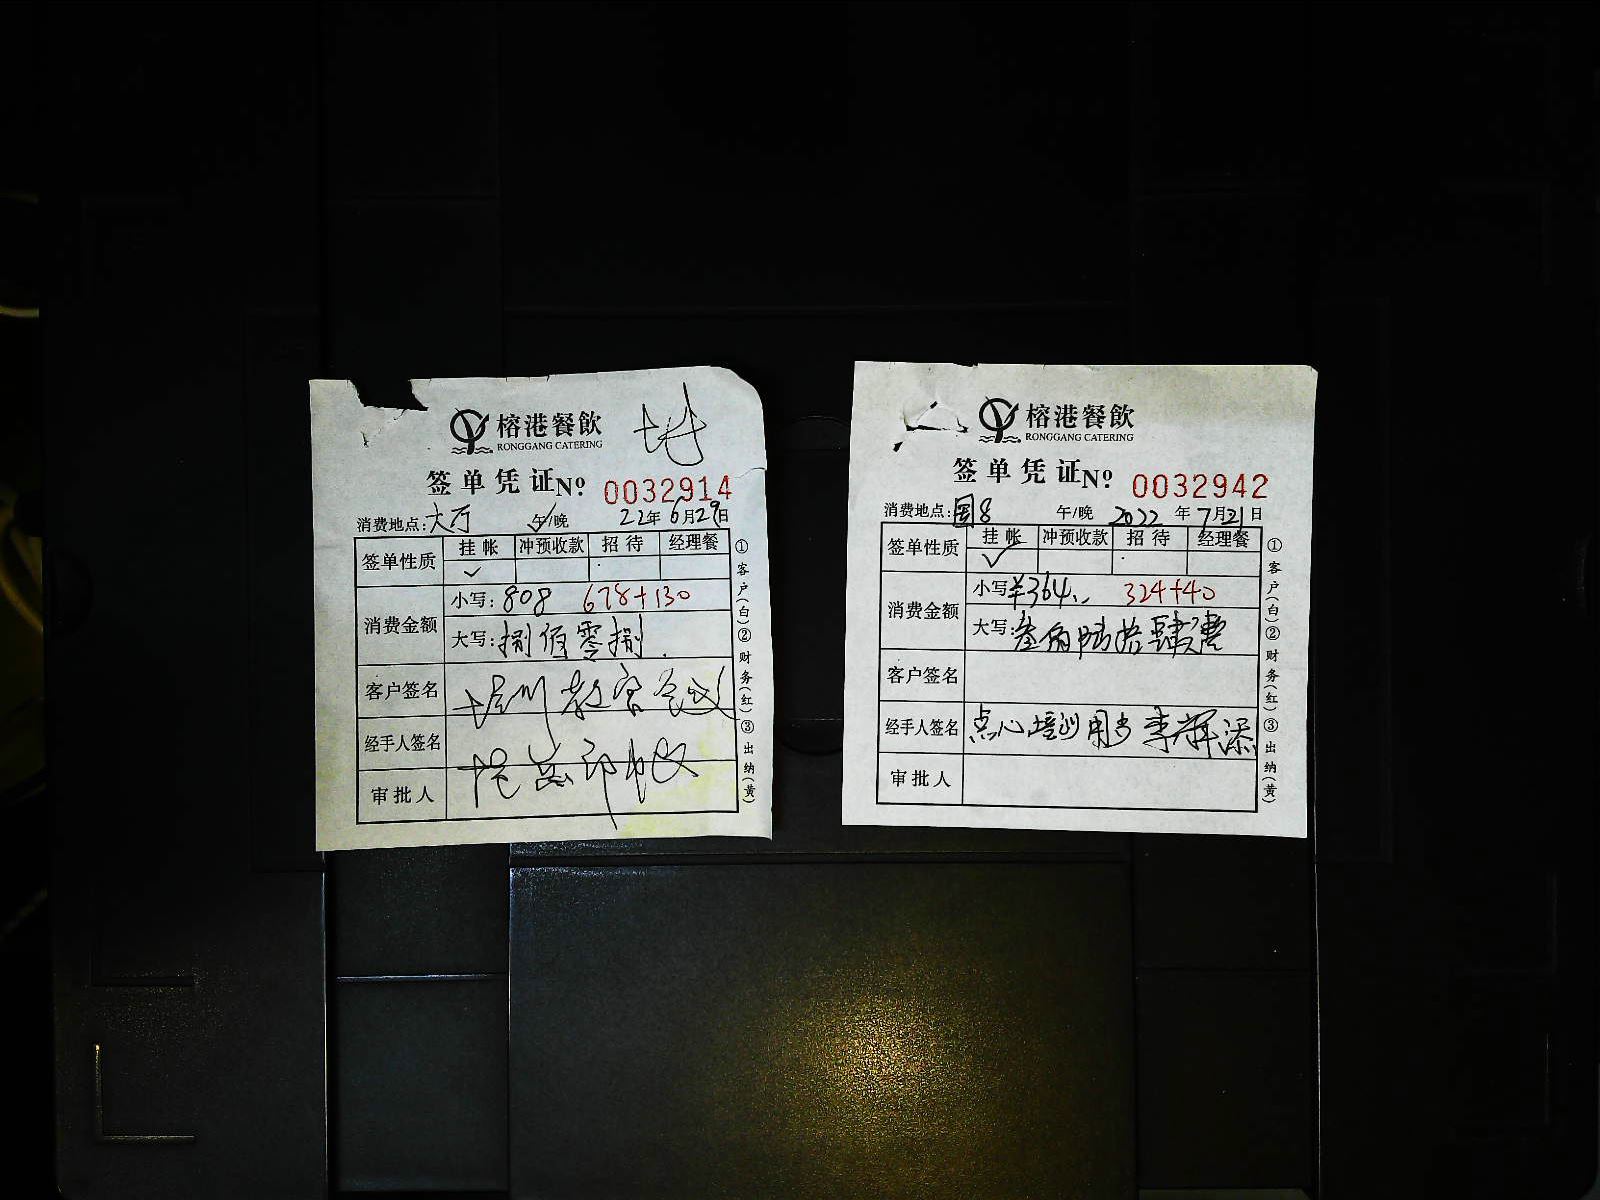 榕港餐飲
RONGGANG CATERING
签单凭证 Nº 0032914
消费地点:大厅 午/晚 22年6月29日
签单性质 挂帐 冲预收款 招待 经理餐
✓
消费金额 小写:808 678+130
大写:捌佰零捌
客户签名
经手人签名
审批人
①客户(白)②财务(红)③出纳(黄)
榕港餐飲
RONGGANG CATERING
签单凭证 Nº 0032942
消费地点:国8 午/晚 2022年7月21日
签单性质 挂帐 冲预收款 招待 经理餐
✓
消费金额 小写:¥364 324+40
大写:叁佰陆拾肆
客户签名
经手人签名 点心培训用 李辉添
审批人
①客户(白)②财务(红)③出纳(黄)